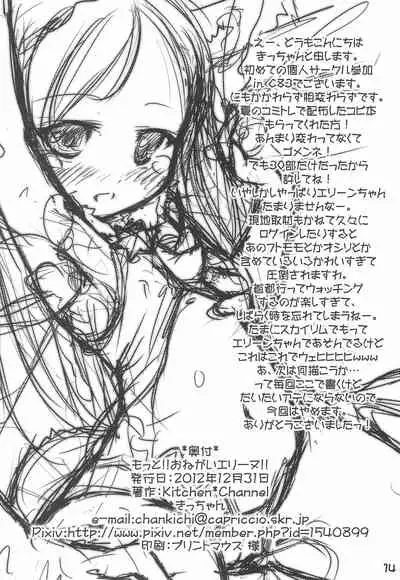 えー、どうもこんにちは
きっちゃんと申します。
初めての個人サークル参加
in C83でございます。
にもかかわらず相変わらずです。
夏のコミトレで配布したコピ本
もらってくれた方！
あんまり変わってなくて
ゴメンネ！
でも30部だけだったから
許してね！
いやしかしやっぱりエリーンちゃん
たまりませんなー。
現地取材もかねて久々に
ログインしたりすると
あのフトモモとかオシリとか
含めているいるかわいすぎて
圧倒されますわ。
首都行ってウォッチング
するのが楽しすぎて、
しばらく時を忘れてしまうねー。
たまにスカイリムでもって
エリーンちゃんであそんでるけど
これはこれでウェヒヒヒヒwww
あ、次は何描こうか…
って毎回ここで書くけど
だいたいアテにならないので
今回はやめます。
ありがとうございましたっ！
*奥付*
もっと!!おねがいエリーヌ!!
発行日:2012年12月31日
著作:Kitchen*Channel
きっちゃん
e-mail:chankichi@capriccio.skr.jp
Pixiv:http://www.pixiv.net/member.php?id=1540899
印刷:プリントマウス 様
14